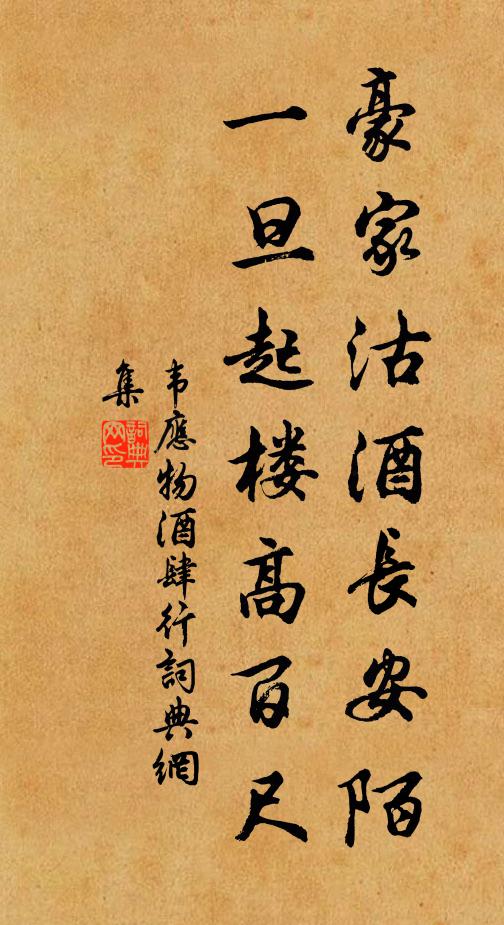 豪家沽酒長安陌
一旦起楼高百尺
韦應物酒肆行詞典網
集
詞典
网印